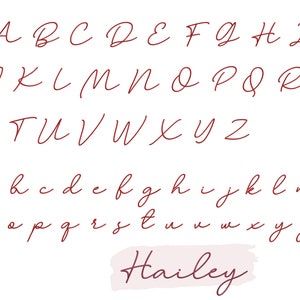 A B C D E F G H I
J K L M N O P Q R
T U V W X Y Z
b c d e f g h i j k l m
o p q r s t u v w x y z
Hailey